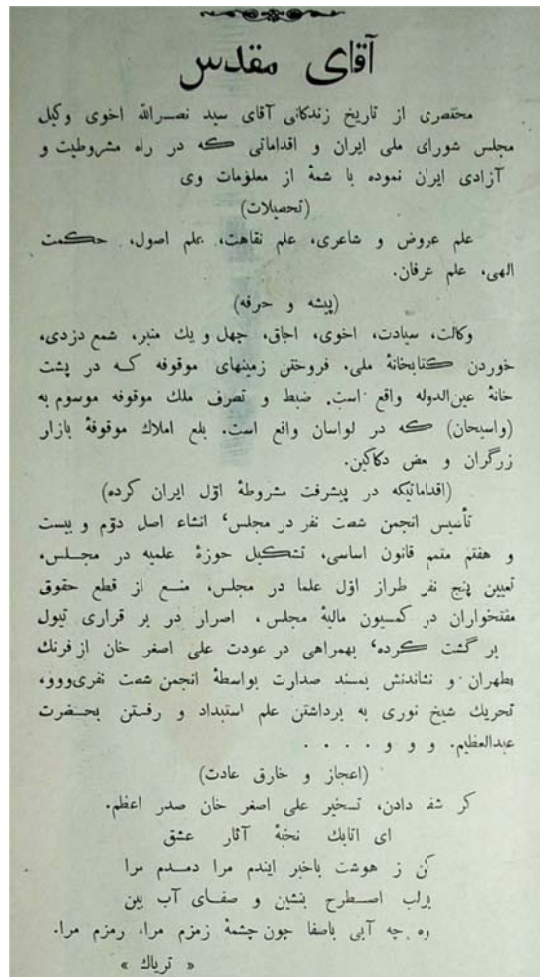 آقای مقدس
مختصری از تاریخ زندگانی آقای سید نصرالله اخوی وکیل
مجلس شورای ملی ایران و اقداماتی که در راه مشروطیت و
آزادی ایران نموده با شمهٔ از معلومات وی
(تحصیلات)
علم عروض و شاعری، علم نقاهت، علم اصول، حکمت
الهی، علم عرفان.
(پیشه و حرفه)
وکالت، سیادت، اخوی، اجاق، چهل و یك منبر، شمع دزدی،
خوردن کتابخانهٔ ملی، فروختن زمینهای موقوفه که در پشت
خانهٔ عین‌الدوله واقع است. ضبط و تصرف ملك موقوفه موسوم به
(واسیحان) که در لواسان واقع است. بلع املاك موقوفهٔ بازار
زرگران و بعض دکاکین.
(اقداماتیکه در پیشرفت مشروطهٔ اوّل ایران کرده)
تأسیس انجمن شصت نفر در مجلس، انشاء اصل دوّم و بیست
و هفتم متمم قانون اساسی، تشکیل حوزهٔ علمیه در مجلس،
تعیین پنج نفر طراز اوّل علما در مجلس، منع از قطع حقوق
مفتخواران در کمسیون مالیهٔ مجلس، اصرار در بر قراری تیول
بر گشت کرده، بهمراهی در عودت علی اصغر خان از فرنك
بطهران و نشاندنش بمسند صدارت بواسطهٔ انجمن شصت نفری‌ووو،
تحریك شیخ نوری به برداشتن علم استبداد و رفتن بحضرت
عبدالعظیم. و و و . . . .
(اعجاز و خارق عادت)
کر شفا دادن، تسخیر علی اصغر خان صدر اعظم.
ای اتابك نخهٔ آثار عشق
کن ز هوشت باخبر ایندم مرا دمدم مرا
برلب اسطرح بنشین و صفای آب بین
چه آبی باصفا چون چشمهٔ زمزم مرا، رمزم مرا.
« تریاك »